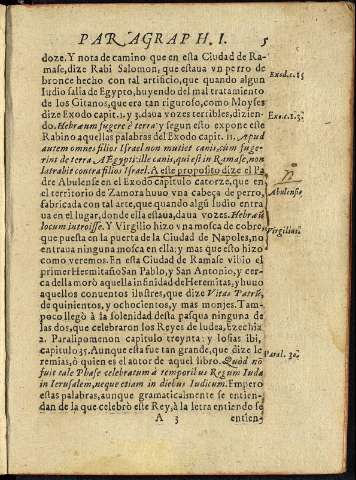 PARAGRAPH. I. 5
doze. Y nota de camino que en esta Ciudad de Ra-
mase, dize Rabi Salomon, que estaua vn perro de
bronce hecho con tal artificio, que quando algun
Iudio salia de Egypto, huyendo del mal tratamiento
de los Gitanos, que era tan riguroso, como Moyses
dize Exodo capit. 1. y 3. daua vozes terribles, dizien-
do. Hebræum fugere è terra y segun esto expone este
Rabino aquellas palabras del Exodo capit. 11. Apud
autem omnes filios Israel non mutiet canis, cum fuge-
rint de terra AEgypti: ille canis, qui est in Ramase, non
latrabit contra filios Israel. A este proposito dize el Pa
dre Abulense en el Exodo capitulo catorze, que en
el territorio de Zamora huuo vna cabeça de perro,
fabricada con tal arte, que quando algũ Iudio entra
ua en el lugar, donde ella estaua, daua vozes. Hebræũ
locum introisse. Y Virgilio hizo vna mosca de cobre,
que puesta en la puerta de la Ciudad de Napoles, no
entraua ninguna mosca en ella: y mas que esto hizo
como veremos. En esta Ciudad de Ramase vibio el
primer Hermitaño San Pablo, y San Antonio, y cer-
ca della morò aquella infinidad de Heremitas, y huuo
aquellos conuentos ilustres, que dize Vitas Patrũ,
de quinientos, y ochocientos, y mas monjes. Tam-
poco llegò à la solenidad desta pasqua ninguna de
las dos, que celebraron los Reyes de Iudea, Ezechia
2. Paralipomenon capitulo treynta; y Iosias ibi,
capitulo 35. Aunque esta fue tan grande, que dize Ie
remias, ò quien es el autor de aquel libro. Quòd nõ
fuit tale Phase celebratum à temporibus Regum Iuda
in Ierusalem, neque etiam in diebus Iudicum. Empero
estas palabras, aunque gramaticalmente se entien-
dan de la que celebrò este Rey, à la letra entiendo se
A 3 entien-
Exod. c. 15
Exo. c. 1. 3.
Abulense
Virgilius.
Paral. 30.